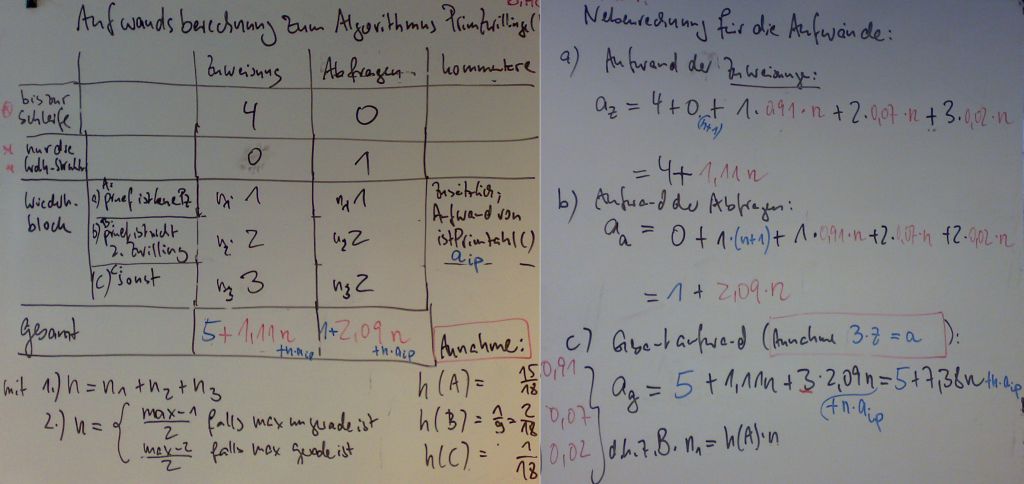 Aufwandsberechnung zum Algorithmus Primzwillinge(
Zuweisung Abfragen Kommentare
bis zur Schleife 4 0
nur die Wdh-Struktur 0 1
Wiederh. block
a) A: pruef ist keine Pz n1· 1 n1 1
b) B: pruef ist nicht 2. Zwilling n2· 2 n2 2
(c) C: sonst n3 3 n3 2
Zusätzlich;
Aufwand von
istPrimzahl()
aip
Gesamt 5 + 1,11n +n·aip 1+2,09n +n·aip
Annahme:
mit 1.) n = n1 + n2 + n3
2.) n = { max-1/2 falls max ungerade ist
max-2/2 falls max gerade ist
h(A) = 15/18 0,91
h(B) = 1/9 = 2/18 0,07
h(C) = 1/18 0,02
Nebenrechnung für die Aufwände:
a) Aufwand der Zuweisungen:
az = 4 + 0 + 1·0,91·n + 2·0,07·n + 3·0,02·n
(n+1)
= 4 + 1,11n
b) Aufwand der Abfragen:
aa = 0 + 1·(n+1) + 1·0,91·n + 2·0,07·n + 2·0,02·n
= 1 + 2,09n
c) Gesamtaufwand (Annahme 3·z = a):
ag = 5 + 1,11n + 3·2,09n = 5 + 7,38n + n·aip
+n·aip
d.h. z.B. n1 = h(A)·n